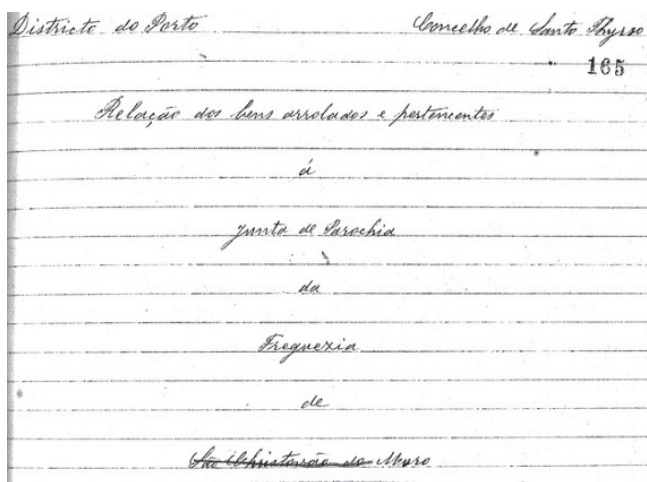 Districto do Porto Concelho de Santo Thyrso
165
Relação dos bens arrolados e pertencentes
á
Junta de Parochia
da
Freguezia
de
São Christovão do Muro